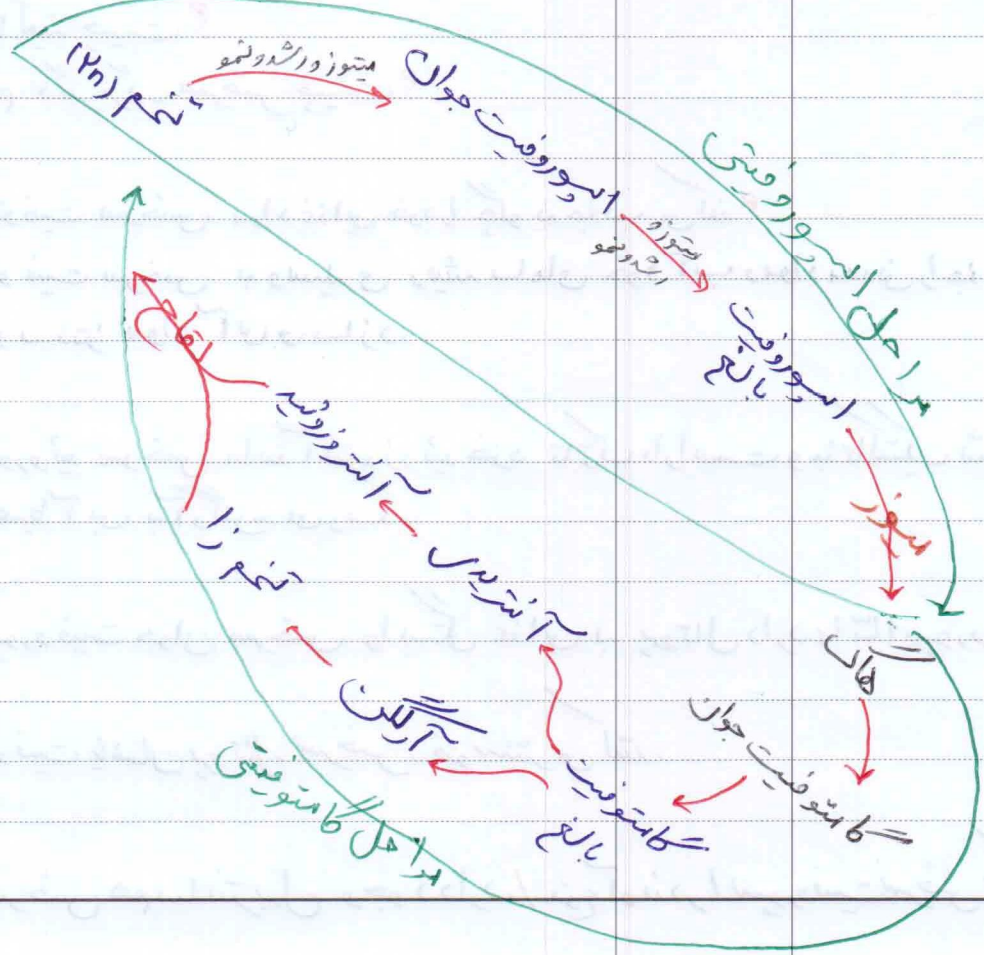 تخم (2n)
میتوز و رشد و نمو
اسپوروفیت جوان
میتوز و
رشد و نمو
اسپوروفیت
بالغ
مراحل اسپوروفیتی
میوز
هاگ
گامتوفیت جوان
گامتوفیت
بالغ
آنتریدی
آنتروزوئید
آرکگن
تخم زا
لقاح
مراحل گامتوفیتی